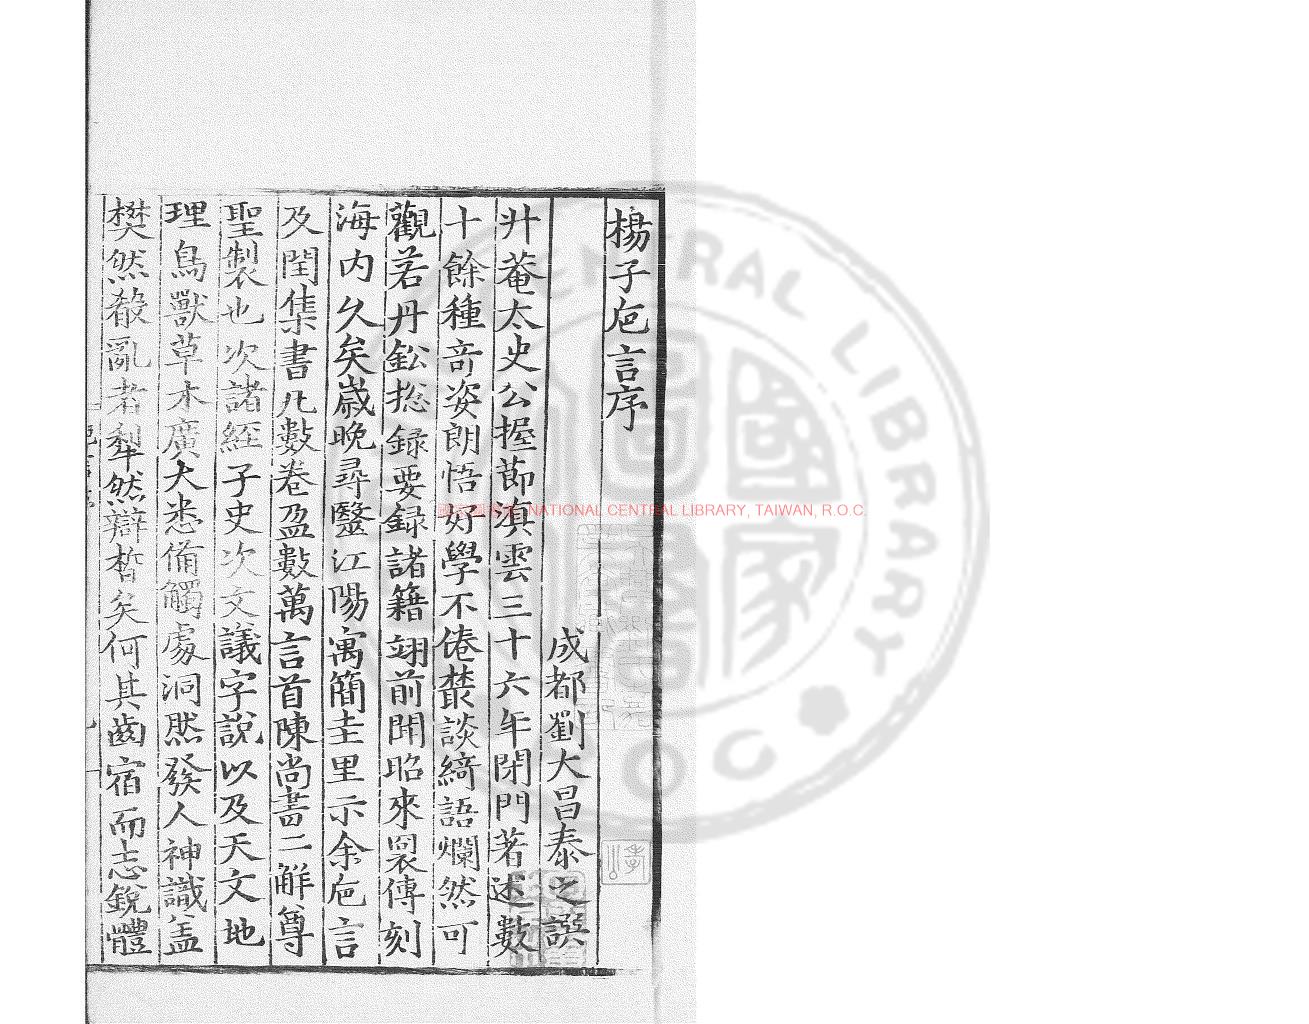 楊子卮言序
成都劉大昌泰之譔
升菴太史公握節滇雲三十六年閉門著述數
十餘種奇姿朗悟好學不倦叢談綺語爛然可
觀若丹鉛揔録要録諸籍翊前開昭來裠傳刻
海内久矣嵗晚尋毉江陽寓簡圭里示余卮言
及閏集書凡數卷盈數萬言首陳尚書二解尊
聖製也次諸經子史次文議字說以及天文地
理鳥獸草木廣大悉備觸處洞然發人神識盖
樊然殽亂者犁然辯晳矣何其齒宿而志銳體
國家圖書館 NATIONAL CENTRAL LIBRARY, TAIWAN, R.O.C.